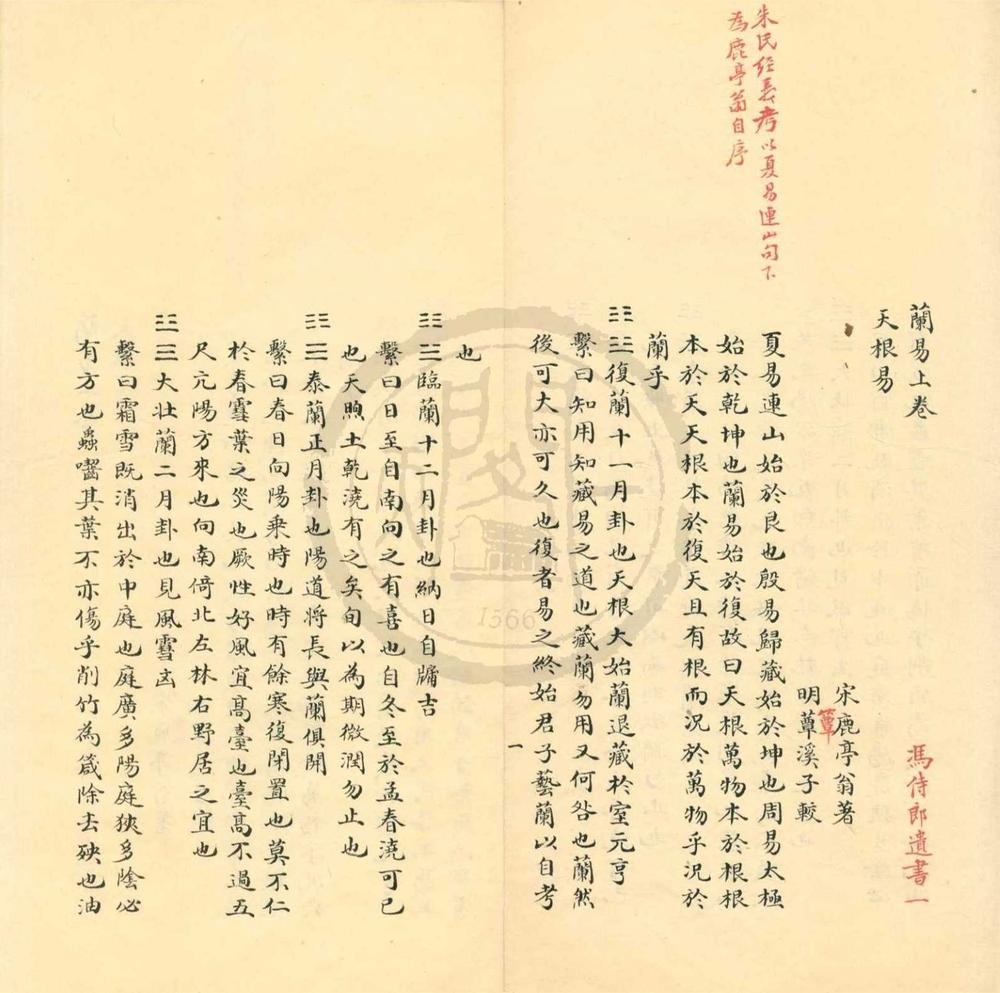 朱氏經義考以夏易連山句下
為鹿亭翁自序
馮侍郎遺書一
蘭易上卷
天根易
宋鹿亭翁著
明蕈溪子較
簟
夏易連山始於艮也殷易歸藏始於坤也周易太極
始於乾坤也蘭易始於復故曰天根萬物本於根根
本於天天根本於復天且有根而況於萬物乎況於
蘭乎
䷗復蘭十一月卦也天根大始蘭退藏於室元亨
繫曰知用知藏易之道也藏蘭勿用又何咎也蘭然
後可大亦可久也復者易之終始君子藝蘭以自考
一
也
䷒臨蘭十二月卦也納日自牖吉
繫曰日至自南向之有喜也自冬至於孟春澆可已
也天煦土乾澆有之矣旬以為期微潤勿止也
䷊泰蘭正月卦也陽道將長與蘭俱開
繫曰春日向陽乘時也時有餘寒復閉置也莫不仁
於春雪葉之災也厥性好風宜高臺也臺高不過五
尺亢陽方來也向南倚北左林右野居之宜也
䷡大壯蘭二月卦也見風雪凶
繫曰霜雪既消出於中庭也庭廣多陽庭狹多陰必
有方也蟲囓其葉不亦傷乎削竹為箴除去殃也油
1566